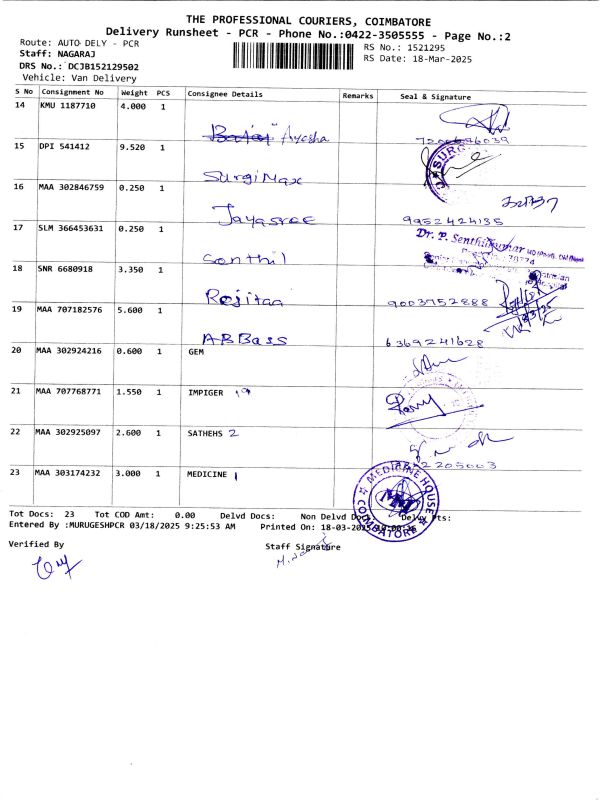 THE PROFESSIONAL COURIERS, COIMBATORE
Delivery Runsheet - PCR - Phone No.:0422-3505555 - Page No.:2
Route: AUTO DELY - PCR
RS No.: 1521295
Staff: NAGARAJ
RS Date: 18-Mar-2025
DRS No.: DCJB152129502
Vehicle: Van Delivery
S No Consignment No Weight PCS Consignee Details Remarks Seal & Signature
14 KMU 1187710 4.000 1
Ayesha
15 DPI 541412 9.520 1
SurgiMax SURG
16 MAA 302846759 0.250 1
Jayasree 9952424135
17 SLM 366453631 0.250 1 Dr. P. Senthilkumar
Senthil
18 SNR 6680918 3.350 1
Rojitaa 9003752888
19 MAA 707182576 5.600 1
ABBass 6369241628
20 MAA 302924216 0.600 1 GEM
21 MAA 707768771 1.550 1 IMPIGER
22 MAA 302925097 2.600 1 SATHEHS 2
23 MAA 303174232 3.000 1 MEDICINE 1
MEDICINE HOUSE COIMBATORE
Tot Docs: 23 Tot COD Amt: 0.00 Delvd Docs: Non Delvd Docs:
Entered By :MURUGESHPCR 03/18/2025 9:25:53 AM Printed On: 18-03-2025
Verified By
Staff Signature